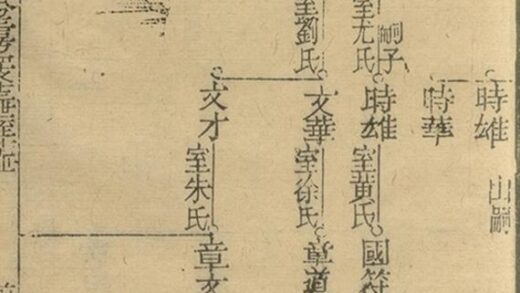 時雄 出嗣
時華
嗣子
室尤氏
時雄 室黃氏 國符
室劉氏
文華 室徐氏 章道
文才 室朱氏 章文